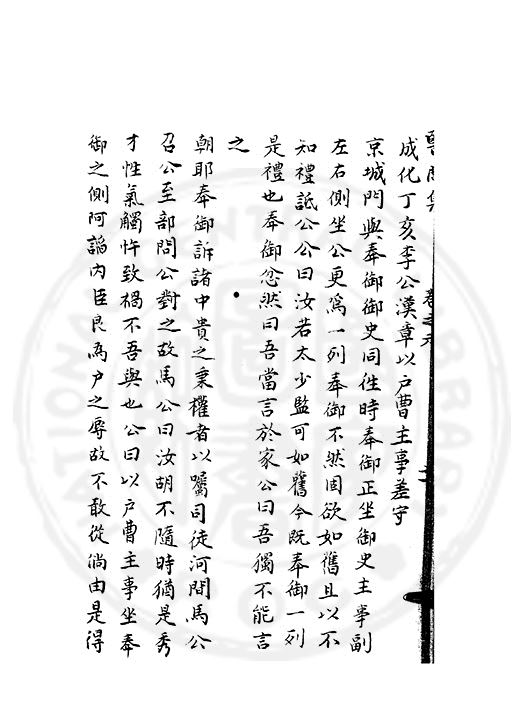 成化丁亥李公漢章以戶曹主事差守
京城門與奉御御史同徃時奉御正坐御史主事副
左右側坐公更爲一列奉御不然固欲如舊且以不
知禮詆公公曰汝若太少監可如舊今旣奉御一列
是禮也奉御忿然曰吾當言於家公曰吾獨不能言
之
朝耶奉御訴諸中貴之秉權者以囑司徒河間馬公
召公至部問公對之故馬公曰汝胡不隨時猶是秀
才性氣觸忤致禍不吾與也公曰以戶曹主事坐奉
御之側阿謟內臣良爲户之辱故不敢從倘由是得